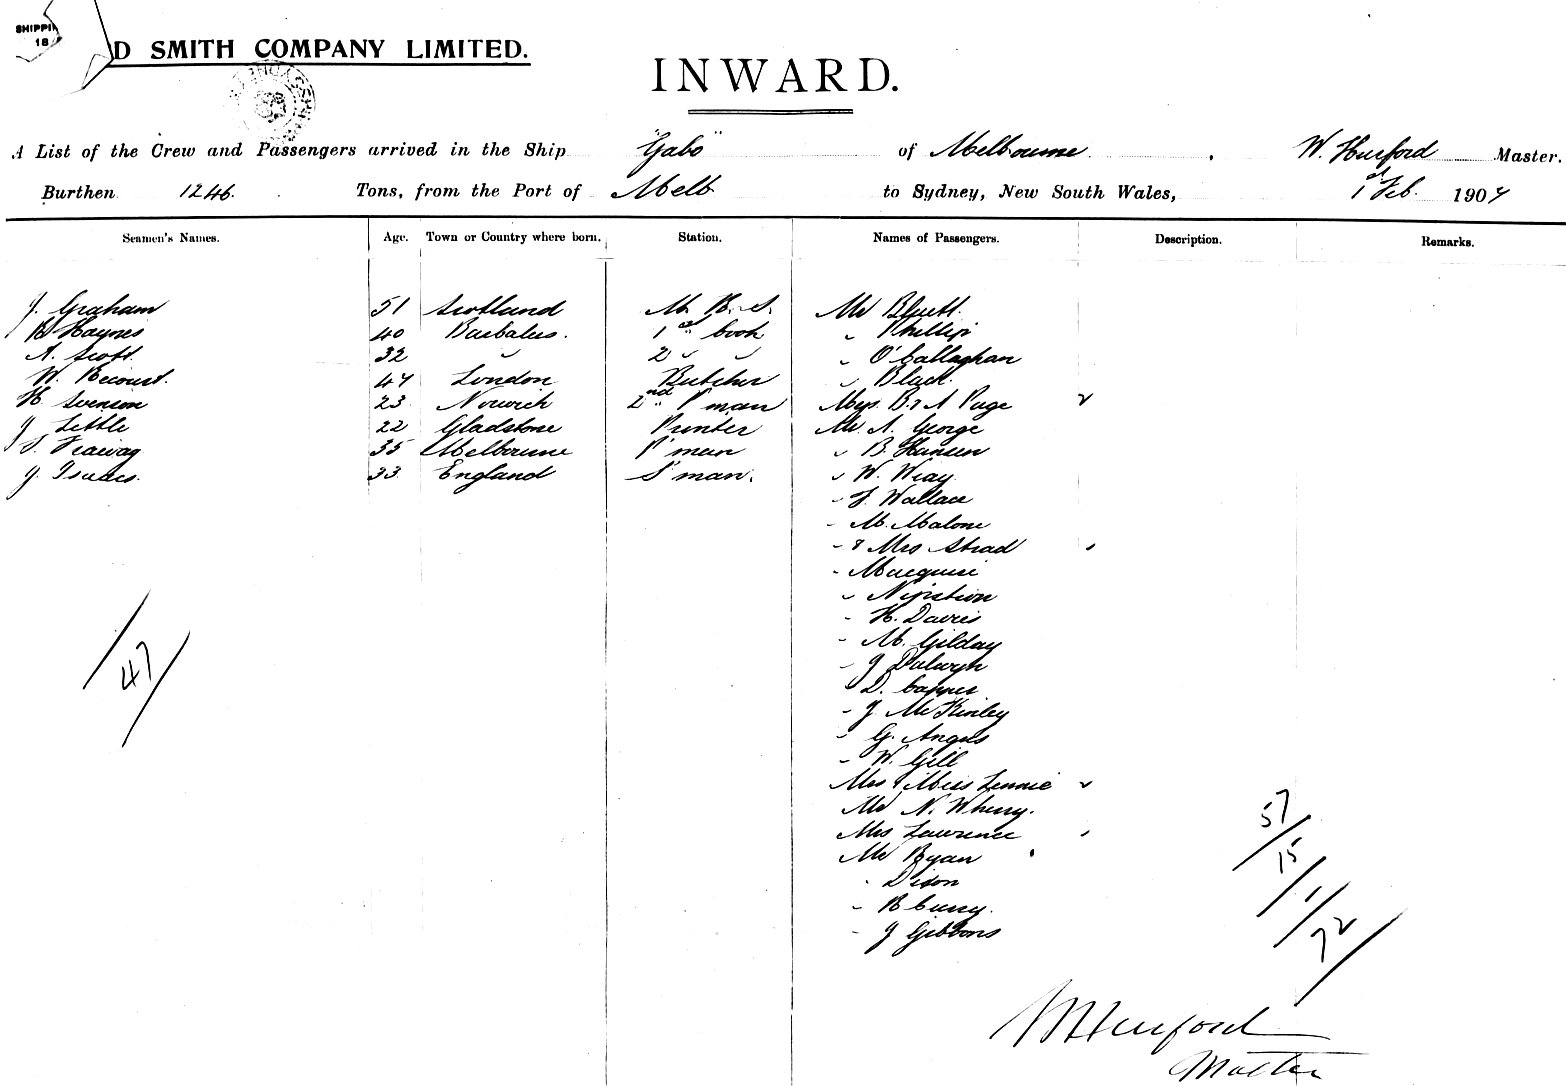 SHIPPIN
18
D SMITH COMPANY LIMITED.
INWARD.
A List of the Crew and Passengers arrived in the Ship "Gabo" of Melbourne, W. Hurford Master.
Burthen 1246. Tons, from the Port of Melb to Sydney, New South Wales, 1st Feb. 1904
Seamen's Names. Age. Town or Country where born. Station. Names of Passengers. Description. Remarks.
J. Graham 51 Scotland M. R. S. Mr Bluett.
B. Haynes 40 Barbados. 1st cook " Phillip
A. Scott. 32 " 2 " " " O'Callaghan
W. 47 London Butcher " Black.
H. Svenson 23 Norwich 2nd P'man B & A Page
J. Little 22 Gladstone Printer Mr A. George
S. 35 Melbourne P'man " B. Hansen
J. Isaacs. 33 England S'man. " W. Wray
" Wallace
- M. Malone
- & Mrs Strad
- Macquire
"
- H. Davies
- M. Gilday
- J
" D. Capper
- J. McKinley
- G. Angus
- W. Gill
Mrs & Miss Lennie
Mr N. Wherry.
Mrs Lawrence
Mr Ryan
- Dixon
- R Curry.
- J Gibbons
47
57/15/1/72
W Hurford
Master